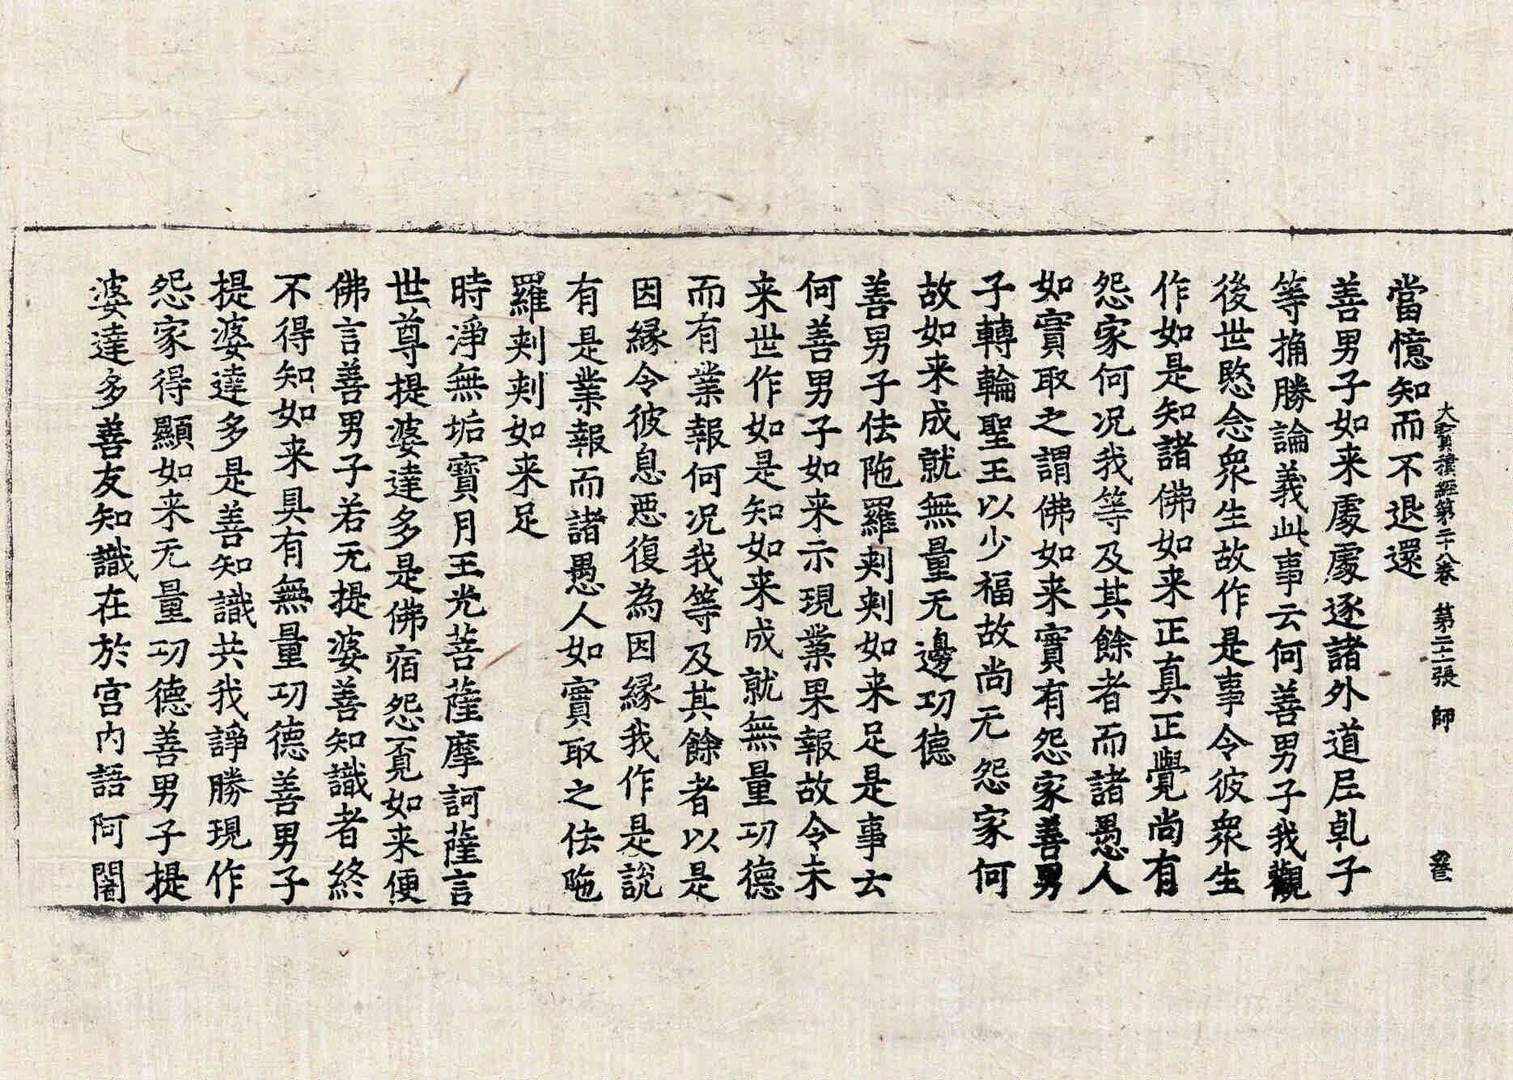 大寶積經第二十八卷 第二十二張 師
當憶知而不退還
善男子如来處處逐諸外道尼乹子
等捔勝論義此事云何善男子我觀
後世愍念衆生故作是事令彼衆生
作如是知諸佛如来正真正覺尚有
怨家何况我等及其餘者而諸愚人
如實取之謂佛如来實有怨家善男
子轉輪聖王以少福故尚无怨家何
故如来成就無量无邊功德
善男子佉陁羅刾刾如来足是事云
何善男子如来示現業果報故令未
来世作如是知如来成就無量功德
而有業報何况我等及其餘者以是
因緣令彼息惡復為因緣我作是說
有是業報而諸愚人如實取之佉陁
羅刾刾如来足
時淨無垢寶月王光菩薩摩訶薩言
世尊提婆達多是佛宿怨覔如来便
佛言善男子若无提婆善知識者終
不得知如来具有無量功德善男子
提婆達多是善知識共我諍勝現作
怨家得顯如来无量功德善男子提
婆達多善友知識在於宮內語阿闍